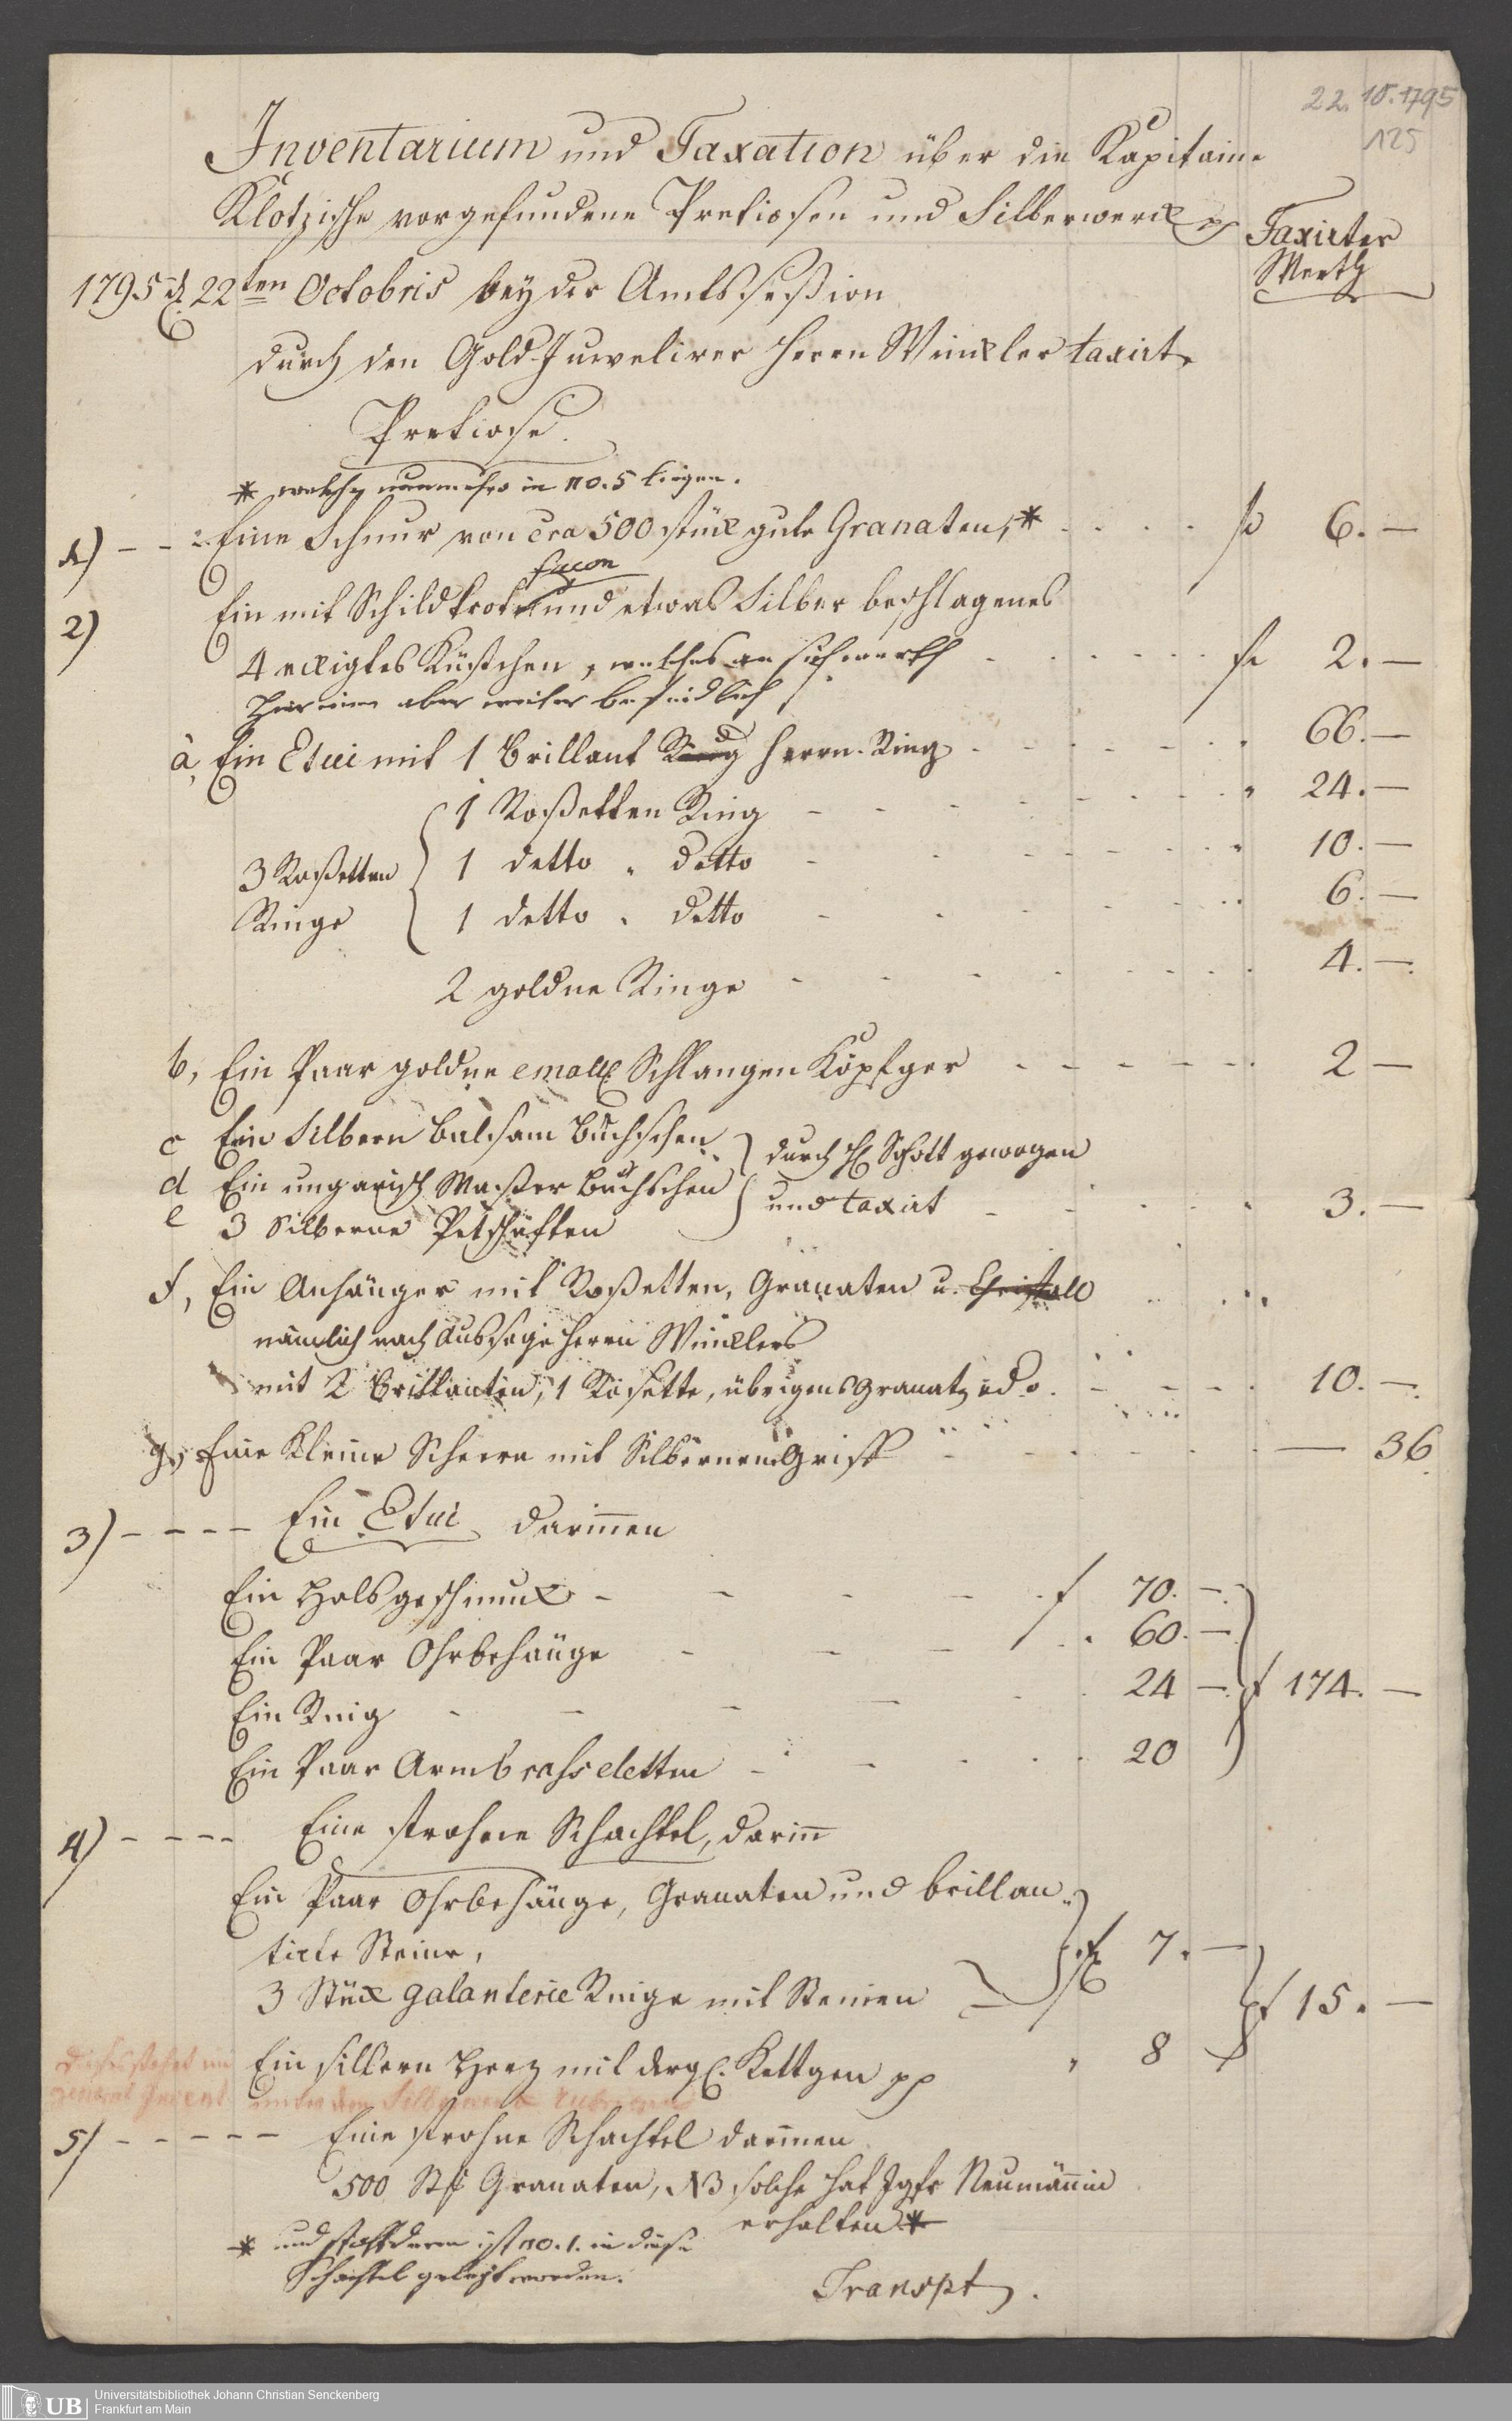 22. 10. 1795
125
Inventarium und Taxation über die Kapitaine
Klotzische vorgefundene Pretiosen und Silberwerck pp
Taxirter
Werth
1795 d. 22ten Octobris bey der Amtssession
durch den Gold-Juwelirer Herrn Winckler taxirt.
Pretiose.
* welche nunmehro in no. 5 liegen.
1) - - Eine Schnur von cra 500 stück gute Granaten,* . . . . f 6. —
facon
2) Ein mit Schildkrot und etwas Silber beschlagenes
4 eckigtes Küstchen, welches an sich werth . . . . . f 2. —
Hierinn aber weiter befindlich
a, Ein Etui mit 1 Brillant Ring Herrn-Ring - - - - 66. —
1 Roßetten Ring - - - - 24. —
3 Roßetten 1 detto " detto - - - - 10. —
Ringe 1 detto " detto - - - - 6. —
2 goldne Ringe - - - - 4. —
b, Ein Paar goldne emall. Schlangen Köpfger - - - - 2 —
c Ein Silbern Balsam Büchschen
durch H. Schott gewogen
d Ein ungarisch Waßer Büchschen
und taxirt - - - - 3. —
e 3 Silberne Petschafften
f, Ein Anhänger mit Roßetten, Granaten u. Christall
nämlich nach Aussage Herrn Wincklers
mit 2 Brillanten, 1 Rosette, übrigens Granat - - - - 10. —
g, Eine kleine Scheere mit Silbernem Griff - - - - — 36.
3) - - - - Ein Etui darinnen
Ein Halsgeschmuck - - - - f 70. —
Ein Paar Ohrbehänge - - - " 60. —
Ein Ring - - - - 24 — f 174. —
Ein Paar Armbrahseletten - - - - 20
4) - - - - Eine strohene Schachtel, darinn
Ein Paar Ohrbehänge, Granaten und brillan-
tirte Steine, f 7. —
3 Stück galanterie Ringe mit Steinen f 15. —
Ein silbern Herz mit dergl. Kettgen pp " 8
Dieses stehet im
general Invent. unter dem Silberwerk
5) - - - - - Eine strohne Schachtel darinnen
500 Stk Granaten, NB solche hat Jgfr Neumännin
erhalten *
* und statt deren ist no. 1. in diese
Schachtel gelegt worden.
Transpt.